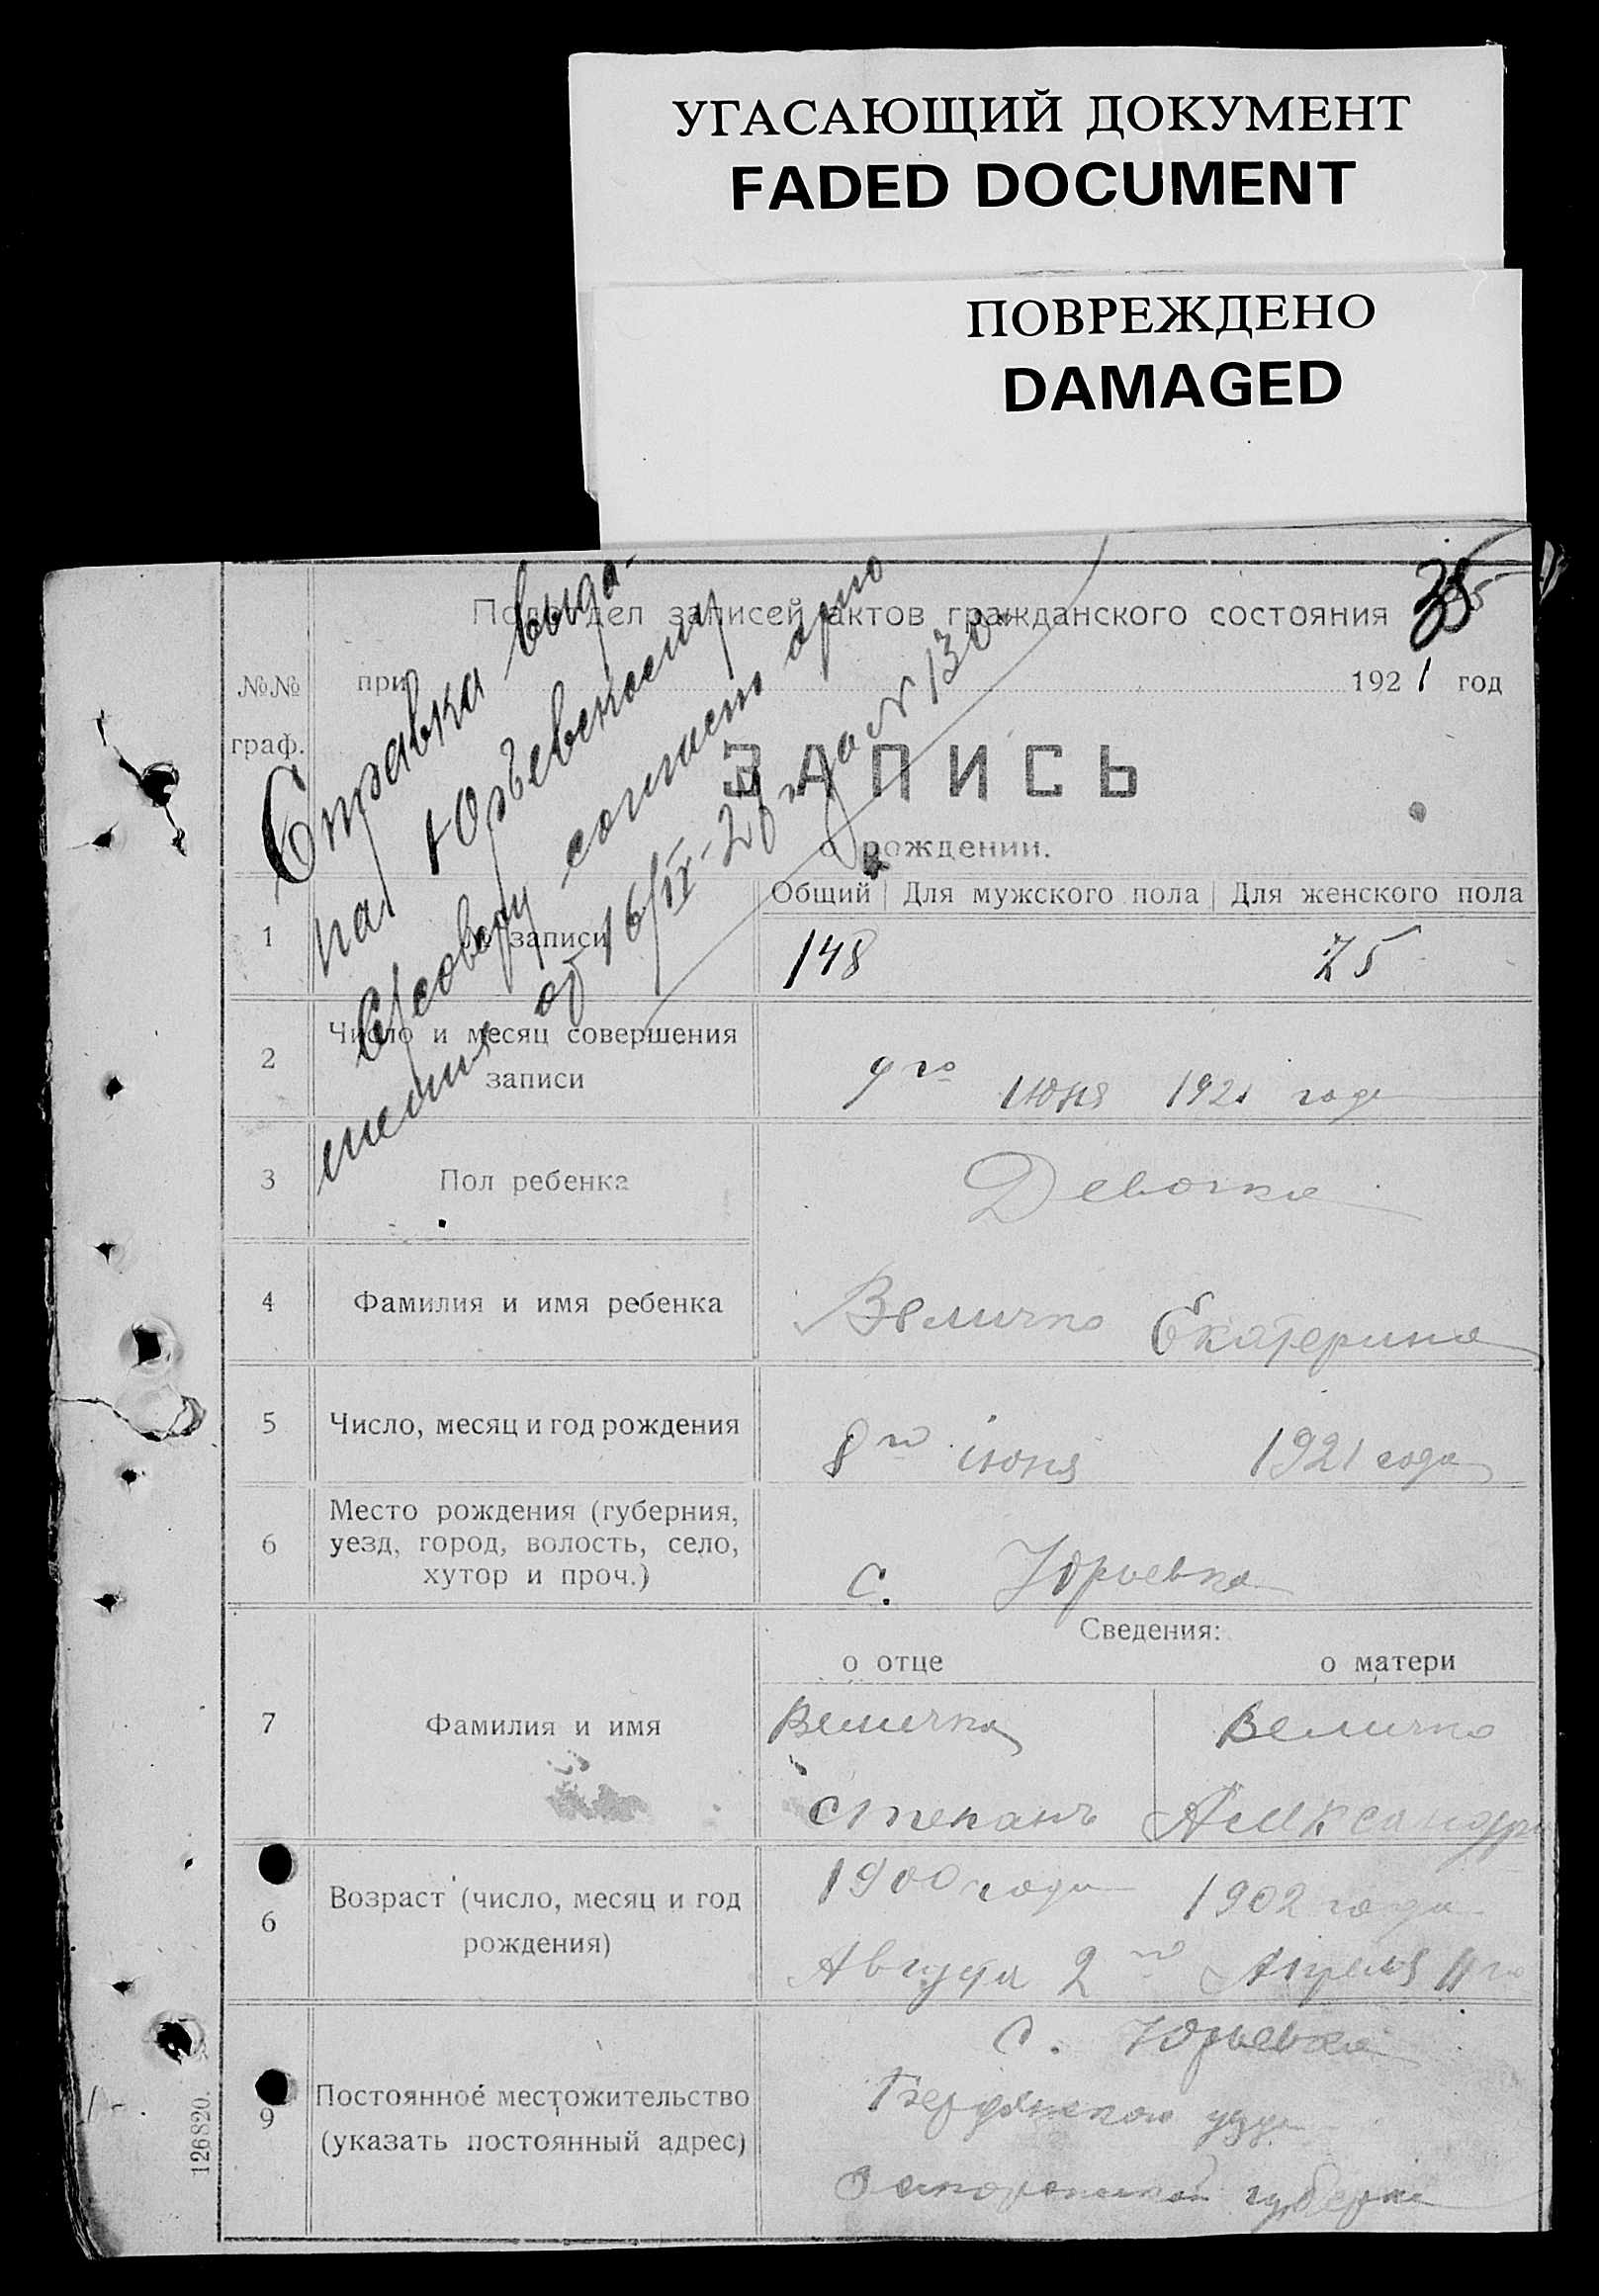 УГАСАЮЩИЙ ДОКУМЕНТ
FADED DOCUMENT
ПОВРЕЖДЕНО
DAMAGED
Подотдел записей актов гражданского состояния
35
№№
граф.
при
1921 год
ЗАПИСЬ
о рождении.
Справка выда-
на Юрьевскому
С/совету
от 16/IV-28 г. за № 130
Общий Для мужского пола Для женского пола
1 записи 148 75
2 Число и месяц совершения
записи
9го июня 1921 года
3 Пол ребенка Девочка
4 Фамилия и имя ребенка Величко Екатерина
5 Число, месяц и год рождения 8го июня 1921 года
6 Место рождения (губерния,
уезд, город, волость, село,
хутор и проч.)
с. Юрьевка
Сведения:
о отце о матери
7 Фамилия и имя Величко Величко
Степанъ Александра
6 Возраст (число, месяц и год
рождения)
1900 года 1902 года
Августа 2го Апреля 11го
9 Постоянное местожительство
(указать постоянный адрес)
с. Юрьевка
Бердянского уезда
Запорожской губернии
126820.